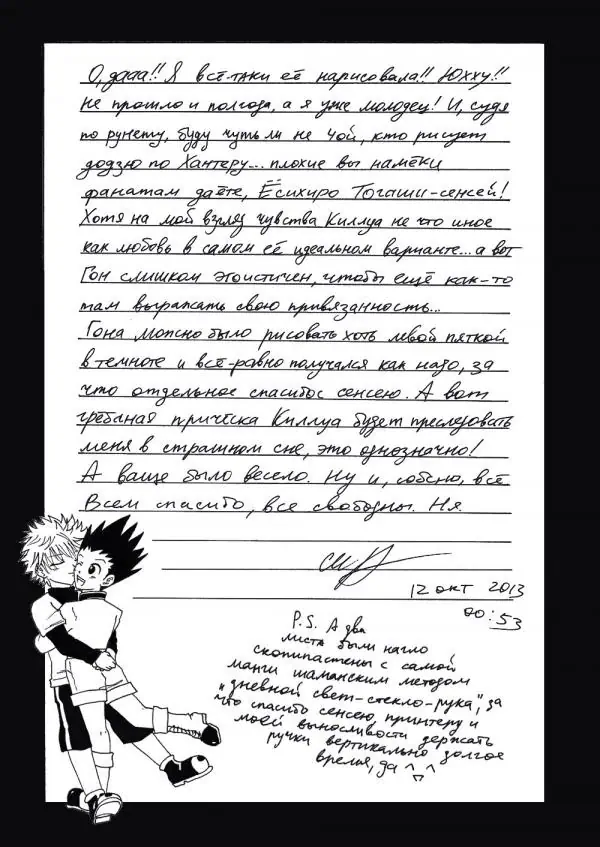 О, дааа!! Я всё-таки её нарисовала!! Юхху!!
Не прошло и полгода, а я уже молодец! И, судя
по рунету, буду чуть ли не 1ой, кто рисует
додзю по Хантеру... плохие вы намёки
фанатам даёте, Ёсихиро Тогаши-сенсей!
Хотя на мой взгляд чувства Киллуа не что иное
как любовь в самом её идеальном варианте... а вот
Гон слишком эгоистичен, чтобы ещё как-то
там выражать свою привязанность...
Гона можно было рисовать хоть левой пяткой
в темноте и всё-равно получался как надо, за
что отдельное спасибос сенсею. А вот
грёбаная причёска Киллуа будет преследовать
меня в страшном сне, это однозначно!
А ваще было весело. Ну и, собсно, всё
Всем спасибо, все свободны. Ня.
12 окт 2013
00:53
P.S. А два
листа были нагло
скопипастены с самой
манги шаманским методом
"дневной свет-стекло-рука", за
что спасибо сенсею, принтеру и
моей выносливости держать
ручки вертикально долгое
время, да ^_^